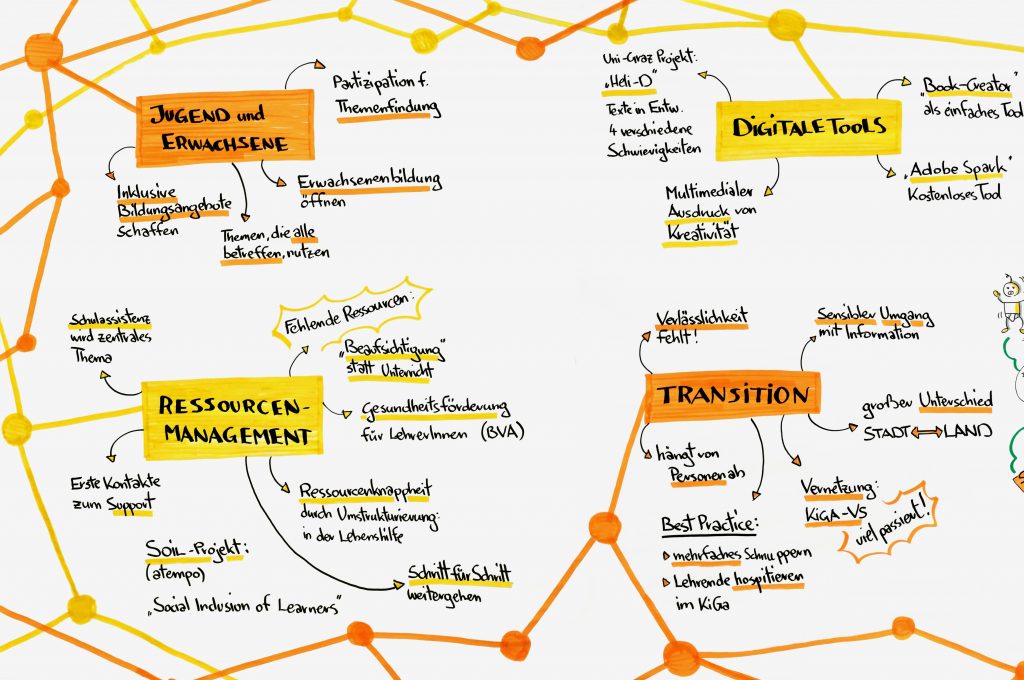 JUGEND und
ERWACHSENE
Partizipation f.
Themenfindung
Erwachsenenbildung
öffnen
Themen, die alle
betreffen, nutzen
Inklusive
Bildungsangebote
Schaffen
DIGITALE TOOLS
Uni-Graz Projekt:
„Heli-D"
Texte in Entw.
4 verschiedene
Schwierigkeiten
„Book-Creator"
als einfaches Tool
„Adobe Spark"
Kostenloses Tool
Multimedialer
Ausdruck von
Kreativität
RESSOURCEN-
MANAGEMENT
Schulassistenz
wird zentrales
Thema
Fehlende Ressourcen:
„Beaufsichtigung"
statt Unterricht
Gesundheitsförderung
für LehrerInnen (BVA)
Ressourcenknappheit
durch Umstrukturierung:
in der Lebenshilfe
Schritt für Schritt
weitergehen
Erste Kontakte
zum Support
SOIL-Projekt:
(atempo)
„Social Inclusion of Learners"
TRANSITION
Verlässlichkeit
fehlt!
Sensibler Umgang
mit Information
großer Unterschied
STADT LAND
Vernetzung:
KiGA-VS
viel passiert!
hängt von
Personen ab
Best Practice:
mehrfaches Schnuppern
Lehrende hospitieren
im KiGa